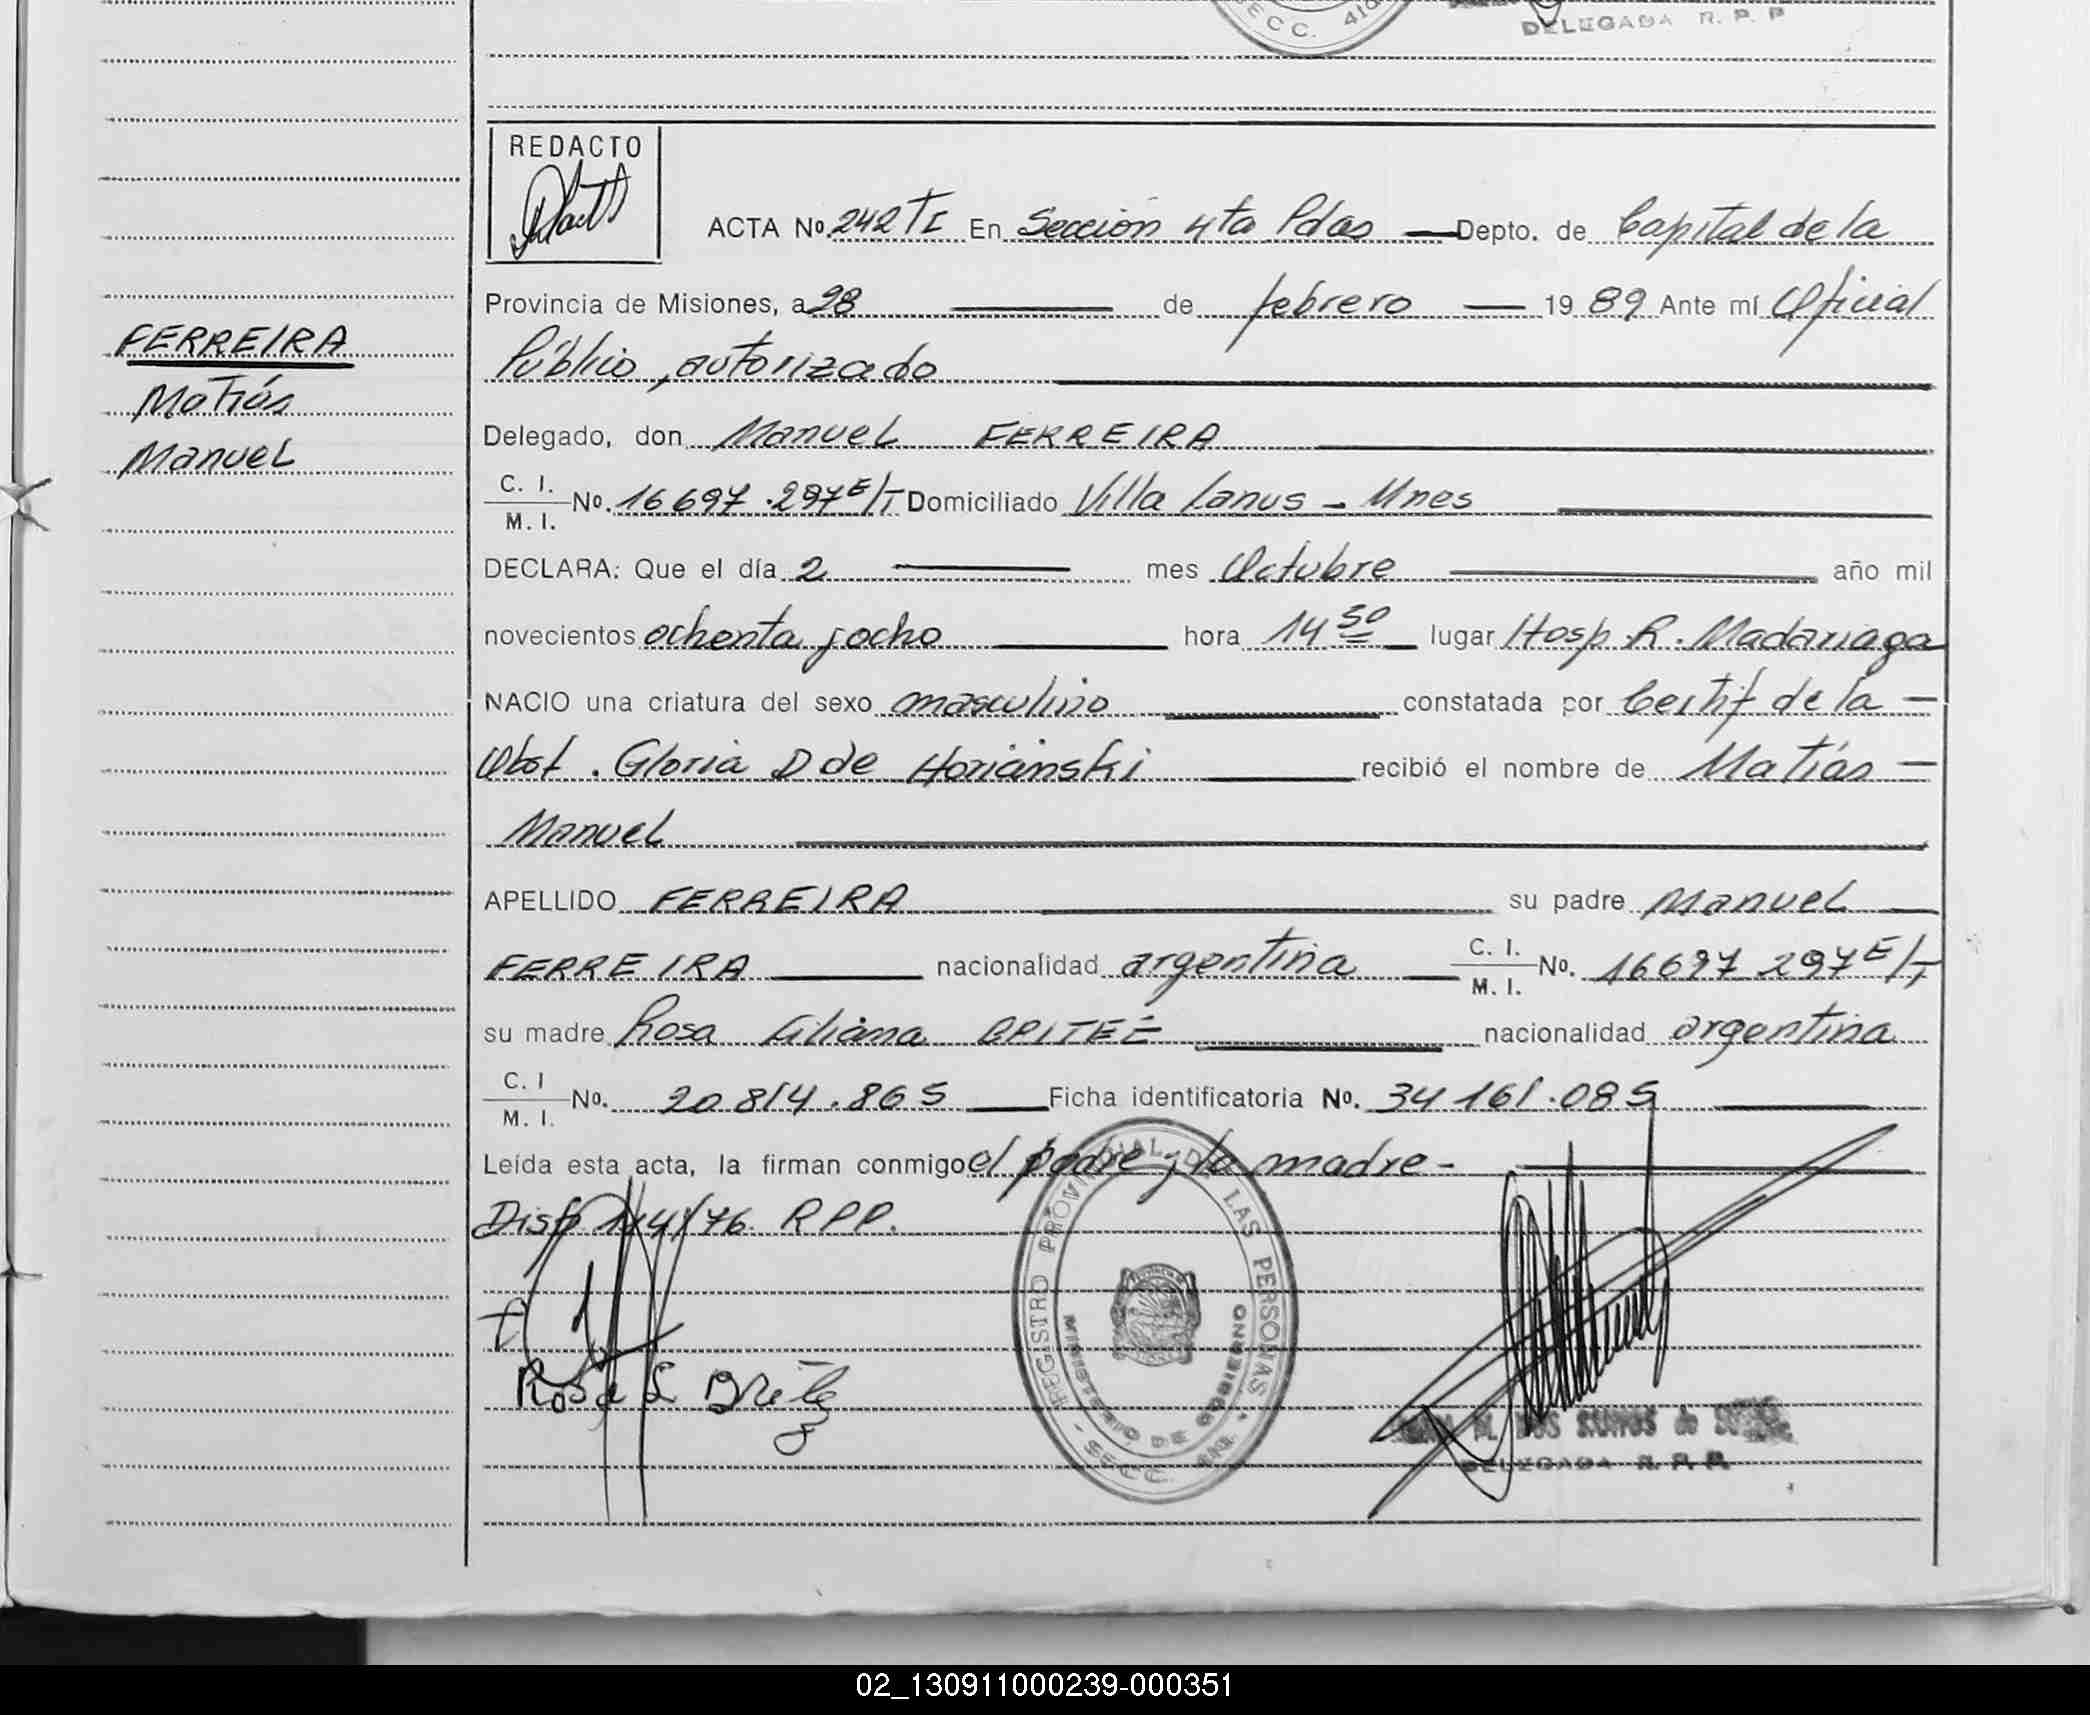 SECC. 4ta
DELEGADA R. P. P
REDACTO
ACTA Nº 242 TI En Sección 4ta Pdas Depto. de Capital de la
Provincia de Misiones, a 28 de febrero 1989 Ante mí Oficial
Público, autorizado
FERREIRA
Matías
Manuel
Delegado, don Manuel FERREIRA
C. I.
M. I. Nº. 16697.297 E/T Domiciliado Villa Lanus - Mnes
DECLARA: Que el día 2 mes Octubre año mil
novecientos ochenta y ocho hora 14 50 lugar Hosp. R. Madariaga
NACIO una criatura del sexo masculino constatada por Certif de la
Obst. Gloria D de Horianski recibió el nombre de Matías
Manuel
APELLIDO FERREIRA su padre Manuel
FERREIRA nacionalidad argentina C. I.
M. I. Nº. 16697 297 E/T
su madre Rosa Liliana BRITEZ nacionalidad argentina
C. I
M. I. Nº. 20 814.865 Ficha identificatoria Nº. 34 161.085
Leída esta acta, la firman conmigo el padre y la madre -
Disp 114/76 R.P.P.
Rosa L Britez
REGISTRO PROVINCIAL DE LAS PERSONAS
MINISTERIO DE GOBIERNO
SECC. 4ta.
M. DOS SANTOS de
DELEGADA R. P. P.
02_130911000239-000351